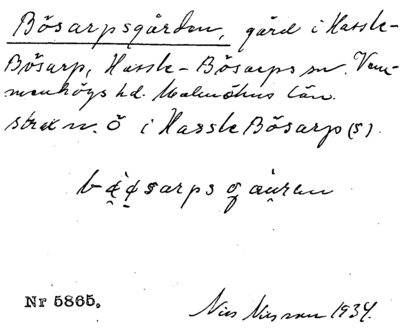 Bösarpsgården, gård i Hassle-
Bösarp, Hassle-Bösarps sn. Vem-
menhögs hd. Malmöhus län.
strax n. ö i Hassle Bösarp (s).
Nr 5865.
Nils Nilsson 1934.